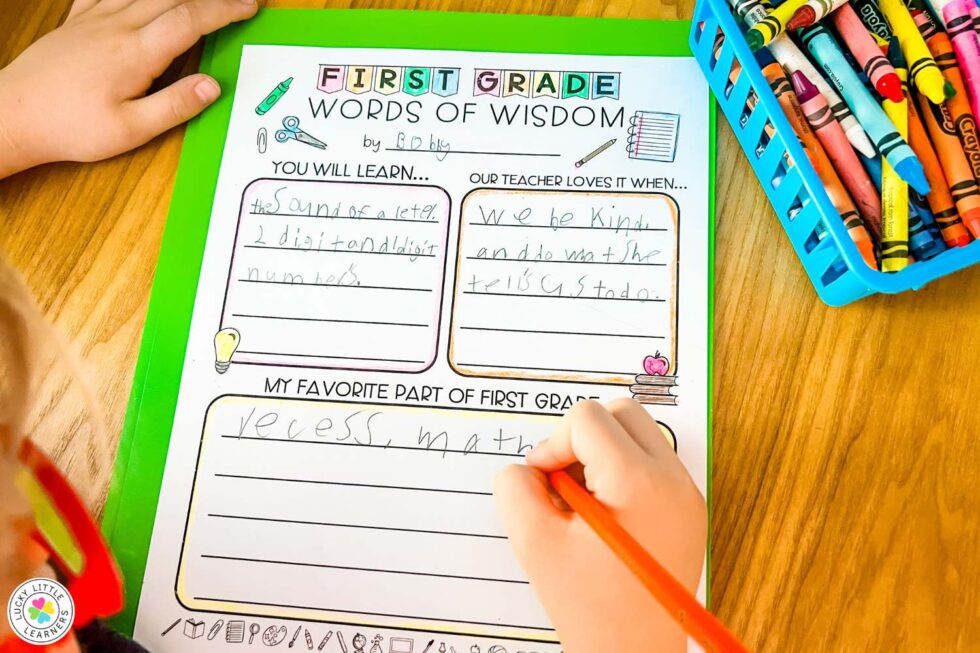 FIRST GRADE
WORDS OF WISDOM
by Bobby
YOU WILL LEARN...
the Sound of a leter.
2 digit and 1 digit
numbers.
OUR TEACHER LOVES IT WHEN...
We be Kind,
and do what She
tell's us to do.
MY FAVORITE PART OF FIRST GRADE
recess, math
Crayola
LUCKY LITTLE LEARNERS